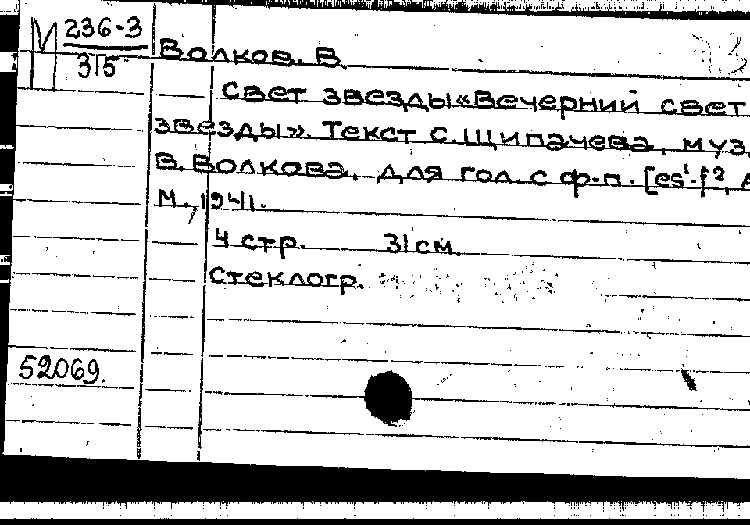 М 236-3
315
Волков. В.
Свет звезды «Вечерний свет
звезды». Текст С. Щипачева, муз.
В. Волкова. Для гол. с ф-п. [es¹-f²,
М., 1941.
4 стр. 31 см.
Стеклогр.
52069.